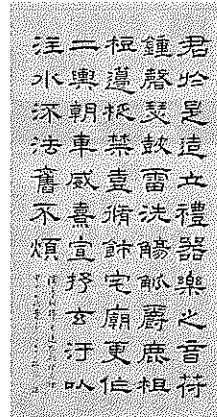 君於是造立禮器樂之音符
鍾磬瑟鼓雷洗觴觚爵鹿柤
梪籩柉禁壺脩飾宅廟更作
二輿朝車威熹宣抒玄汙以
注水流法舊不煩